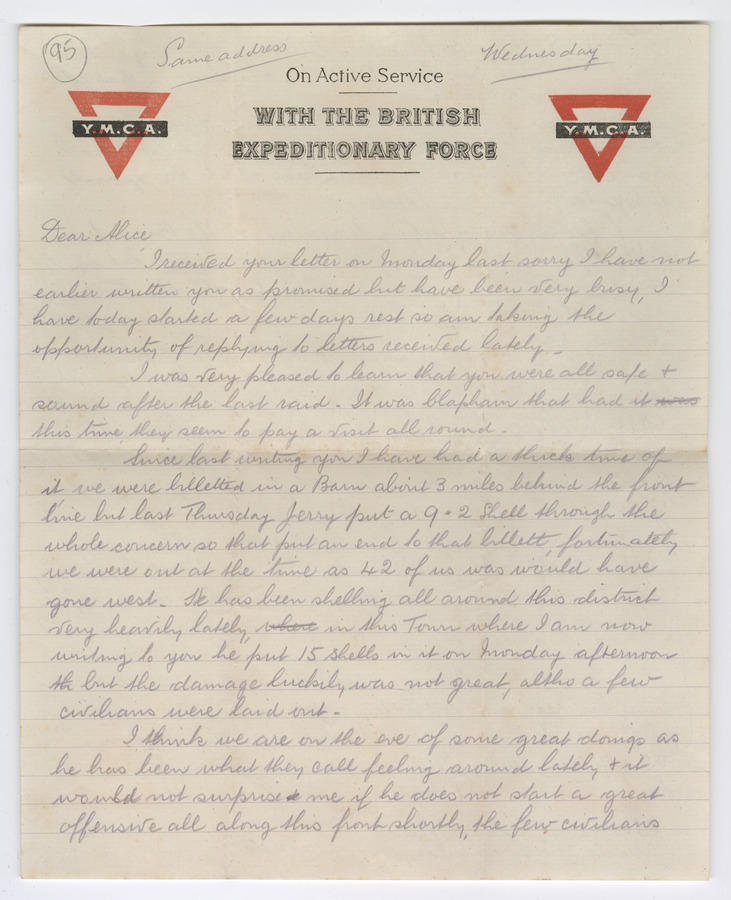 95
Same address
Wednesday
On Active Service
WITH THE BRITISH
EXPEDITIONARY FORCE
Y.M.C.A.
Y.M.C.A.
Dear Alice
I received your letter on Monday last sorry I have not
earlier written you as promised but have been very busy, I
have today started a few days rest so am taking the
opportunity of replying to letters received lately_
I was very pleased to learn that you were all safe +
sound after the last raid - It was Clapham that had it was
this time they seem to pay a visit all round -
Since last writing you I have had a thick time of
it, we were billetted in a Barn about 3 miles behind the front
line but last Thursday Jerry put a 9.2 Shell through the
whole concern so that put an end to that billett, fortunately
we were out at the time as 42 of us was would have
gone west. He has been shelling all around this district
very heavily lately, where in this Town where I am now
writing to you he put 15 shells in it on Monday afternoon
th but the damage luckily was not great, altho a few
civilians were laid out -
I think we are on the eve of some great doings as
he has been what they call feeling around lately + it
would not surprise me if he does not start a great
offensive all along this front shortly, the few civilians